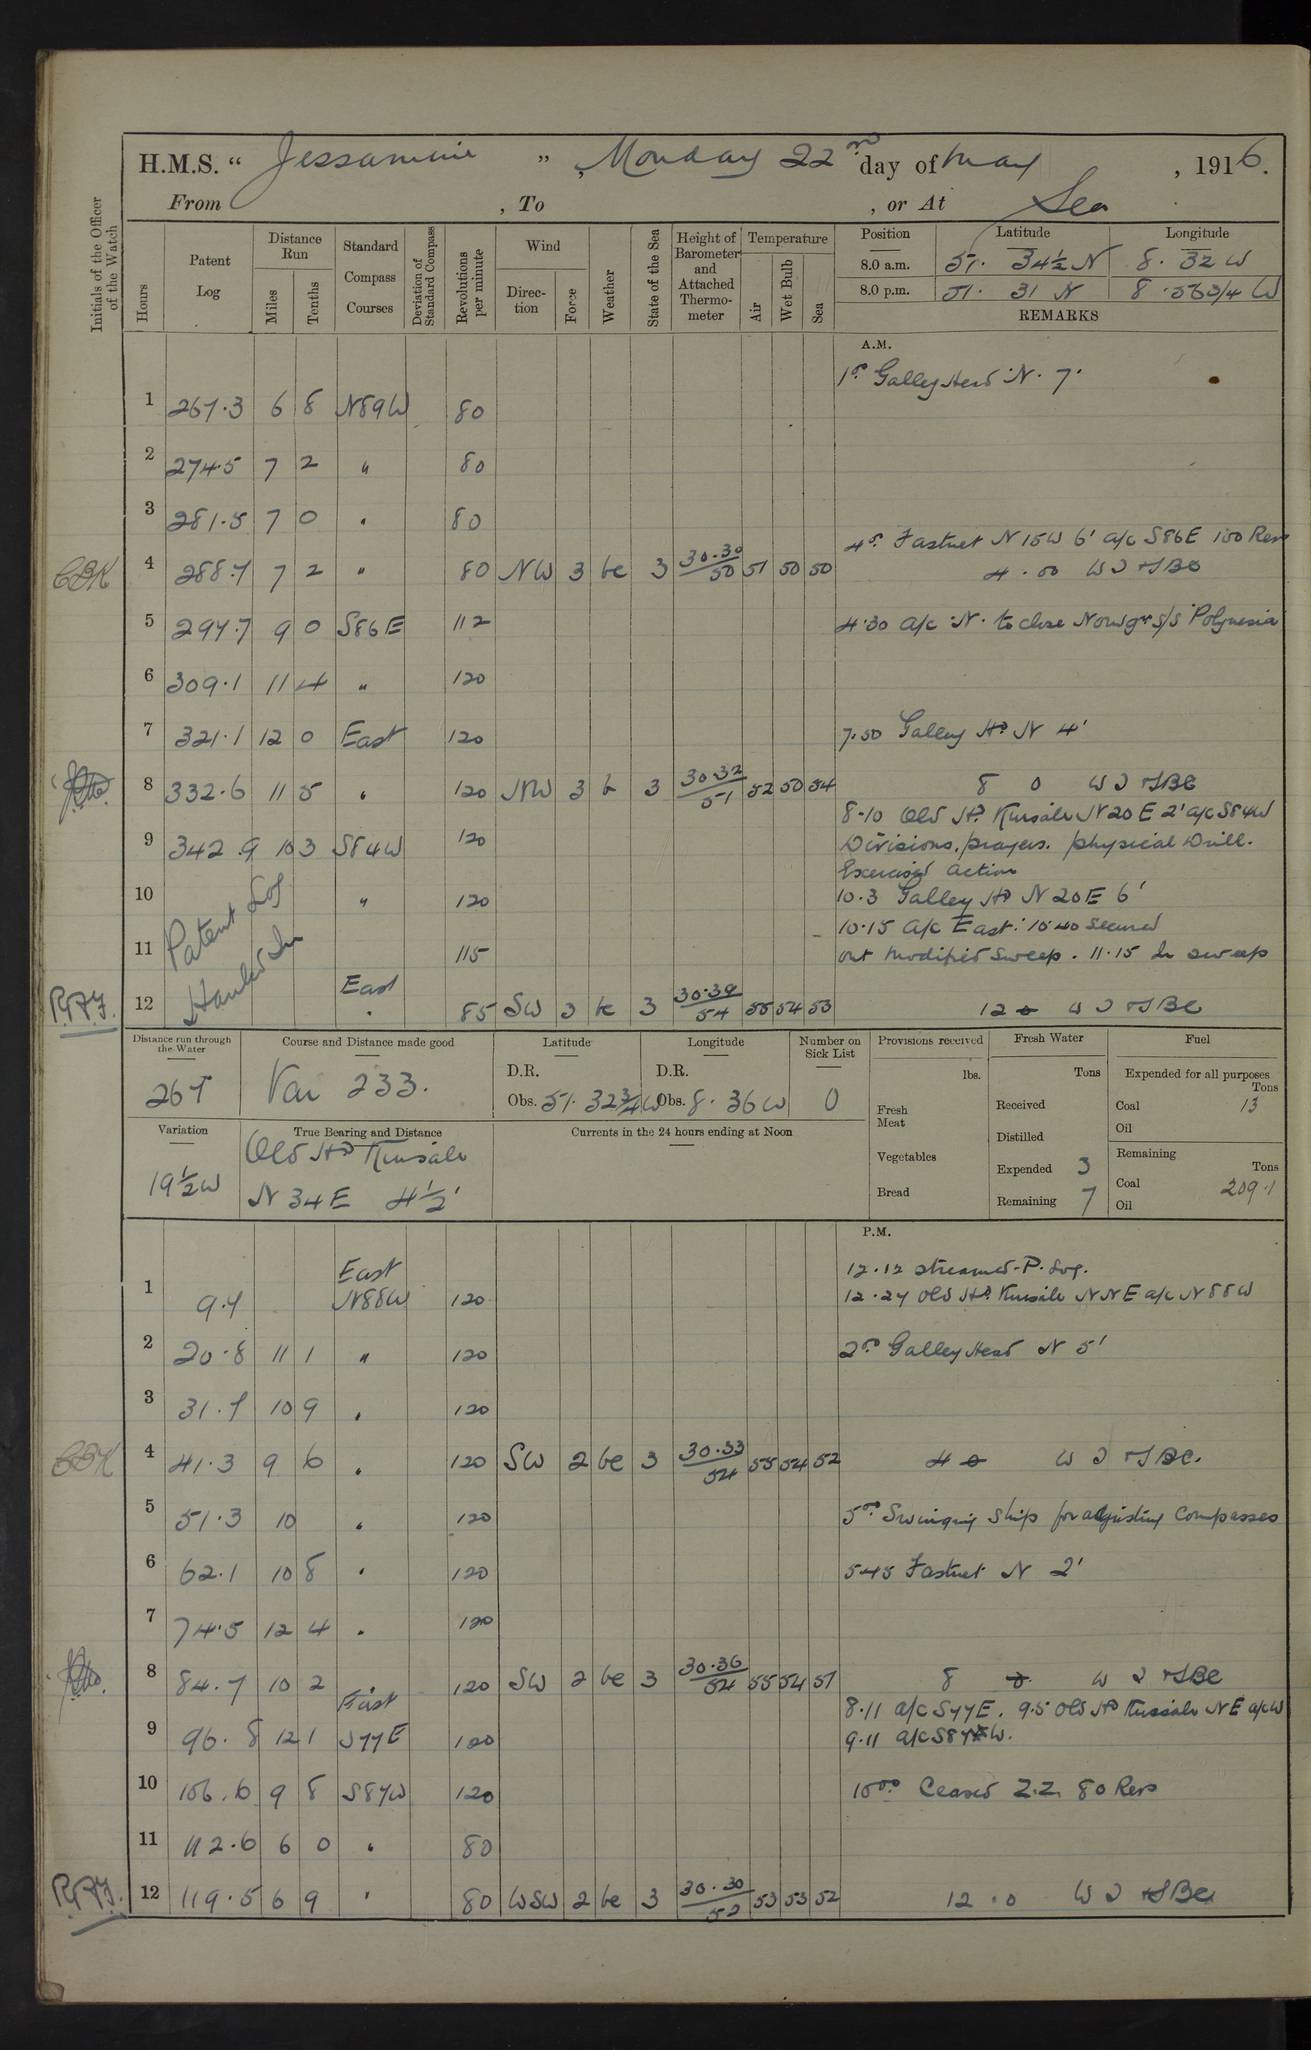 H.M.S. “ Jessamine ” , Monday 22nd day of May , 1916.
From , To , or At Sea
Initials of the Officer of the Watch
Hours
Patent Log
Distance Run
Miles
Tenths
Standard Compass Courses
Deviation of Standard Compass
Revolutions per minute
Wind
Direction
Force
Weather
State of the Sea
Height of Barometer and Attached Thermometer
Temperature
Air
Wet Bulb
Sea
Position Latitude Longitude
8.0 a.m. 51. 34½ N 8. 32 W
8.0 p.m. 51. 31 N 8. 563/4 W
REMARKS
A.M.
1.0 Galley Head N. 7'
1 267.3 6 8 N89W 80
2 274.5 7 2 " 80
3 281.5 7 0 " 80
4.0 Fastnet N15W 6' a/c S86E 100 Revs
4 288.7 7 2 " 80 NW 3 bc 3 30.30 50 51 50 50 4.00 W J & SBC
5 297.7 9 0 S86E 112 4.30 a/c N. to close Norwgn S/S Polynesia
6 309.1 11 4 " 120
7 321.1 12 0 East 120 7.50 Galley Hd N 4'
8 332.6 11 5 " 120 NW 3 b 3 30.32 51 52 50 54 8 0 W J & SBC
8.10 Old Hd Kinsale N20E 2' a/c S84W
9 342.9 10 3 S84W 120 Divisions, prayers, physical Drill.
Exercised Action
10 Patent Log " 120 10.3 Galley Hd N20E 6'
10.15 a/c East. 10.40 Secured
11 Hauled In 115 out modified sweep. 11.15 In sweep
East
12 " 85 SW 2 bc 3 30.34 54 55 54 53 12 0 W J & SBC
Distance run through the Water
267
Course and Distance made good
Var 233.
Latitude
D.R.
Obs. 51. 32¾
Longitude
D.R.
Obs. 8. 36 W
Number on Sick List
0
Provisions received
lbs.
Fresh Meat
Vegetables
Bread
Fresh Water
Tons
Received
Distilled
Expended 3
Remaining 7
Fuel
Expended for all purposes
Tons
Coal 13
Oil
Remaining
Tons
Coal 209.1
Oil
Variation
19½W
True Bearing and Distance
Old Hd Kinsale
N34E 4½'
Currents in the 24 hours ending at Noon
P.M.
East 12.12 streamed P. Log.
1 9.7 N88W 120 12.27 Old Hd Kinsale NNE a/c N88W
2 20.8 11 1 " 120 2.0 Galley Head N 5'
3 31.7 10 9 " 120
4 41.3 9 6 " 120 SW 2 bc 3 30.33 54 55 54 52 4 0 W J & SBC.
5 51.3 10 " 120 5.00 Swinging Ship for adjusting Compasses
6 62.1 10 8 " 120 5.45 Fastnet N 2'
7 74.5 12 4 " 120
8 84.7 10 2 " 120 SW 2 bc 3 30.36 54 55 54 51 8 0 W J & SBC
East 8.11 a/c S77E. 9.5 Old Hd Kinsale NE a/c W
9 96.8 12 1 S77E 120 9.11 a/c S87W.
10 106.6 9 8 S87W 120 10.00 Ceased Z.Z. 80 Revs
11 112.6 6 0 " 80
12 119.5 6 9 " 80 WSW 2 bc 3 30.30 52 53 53 52 12.0 W J & SBC